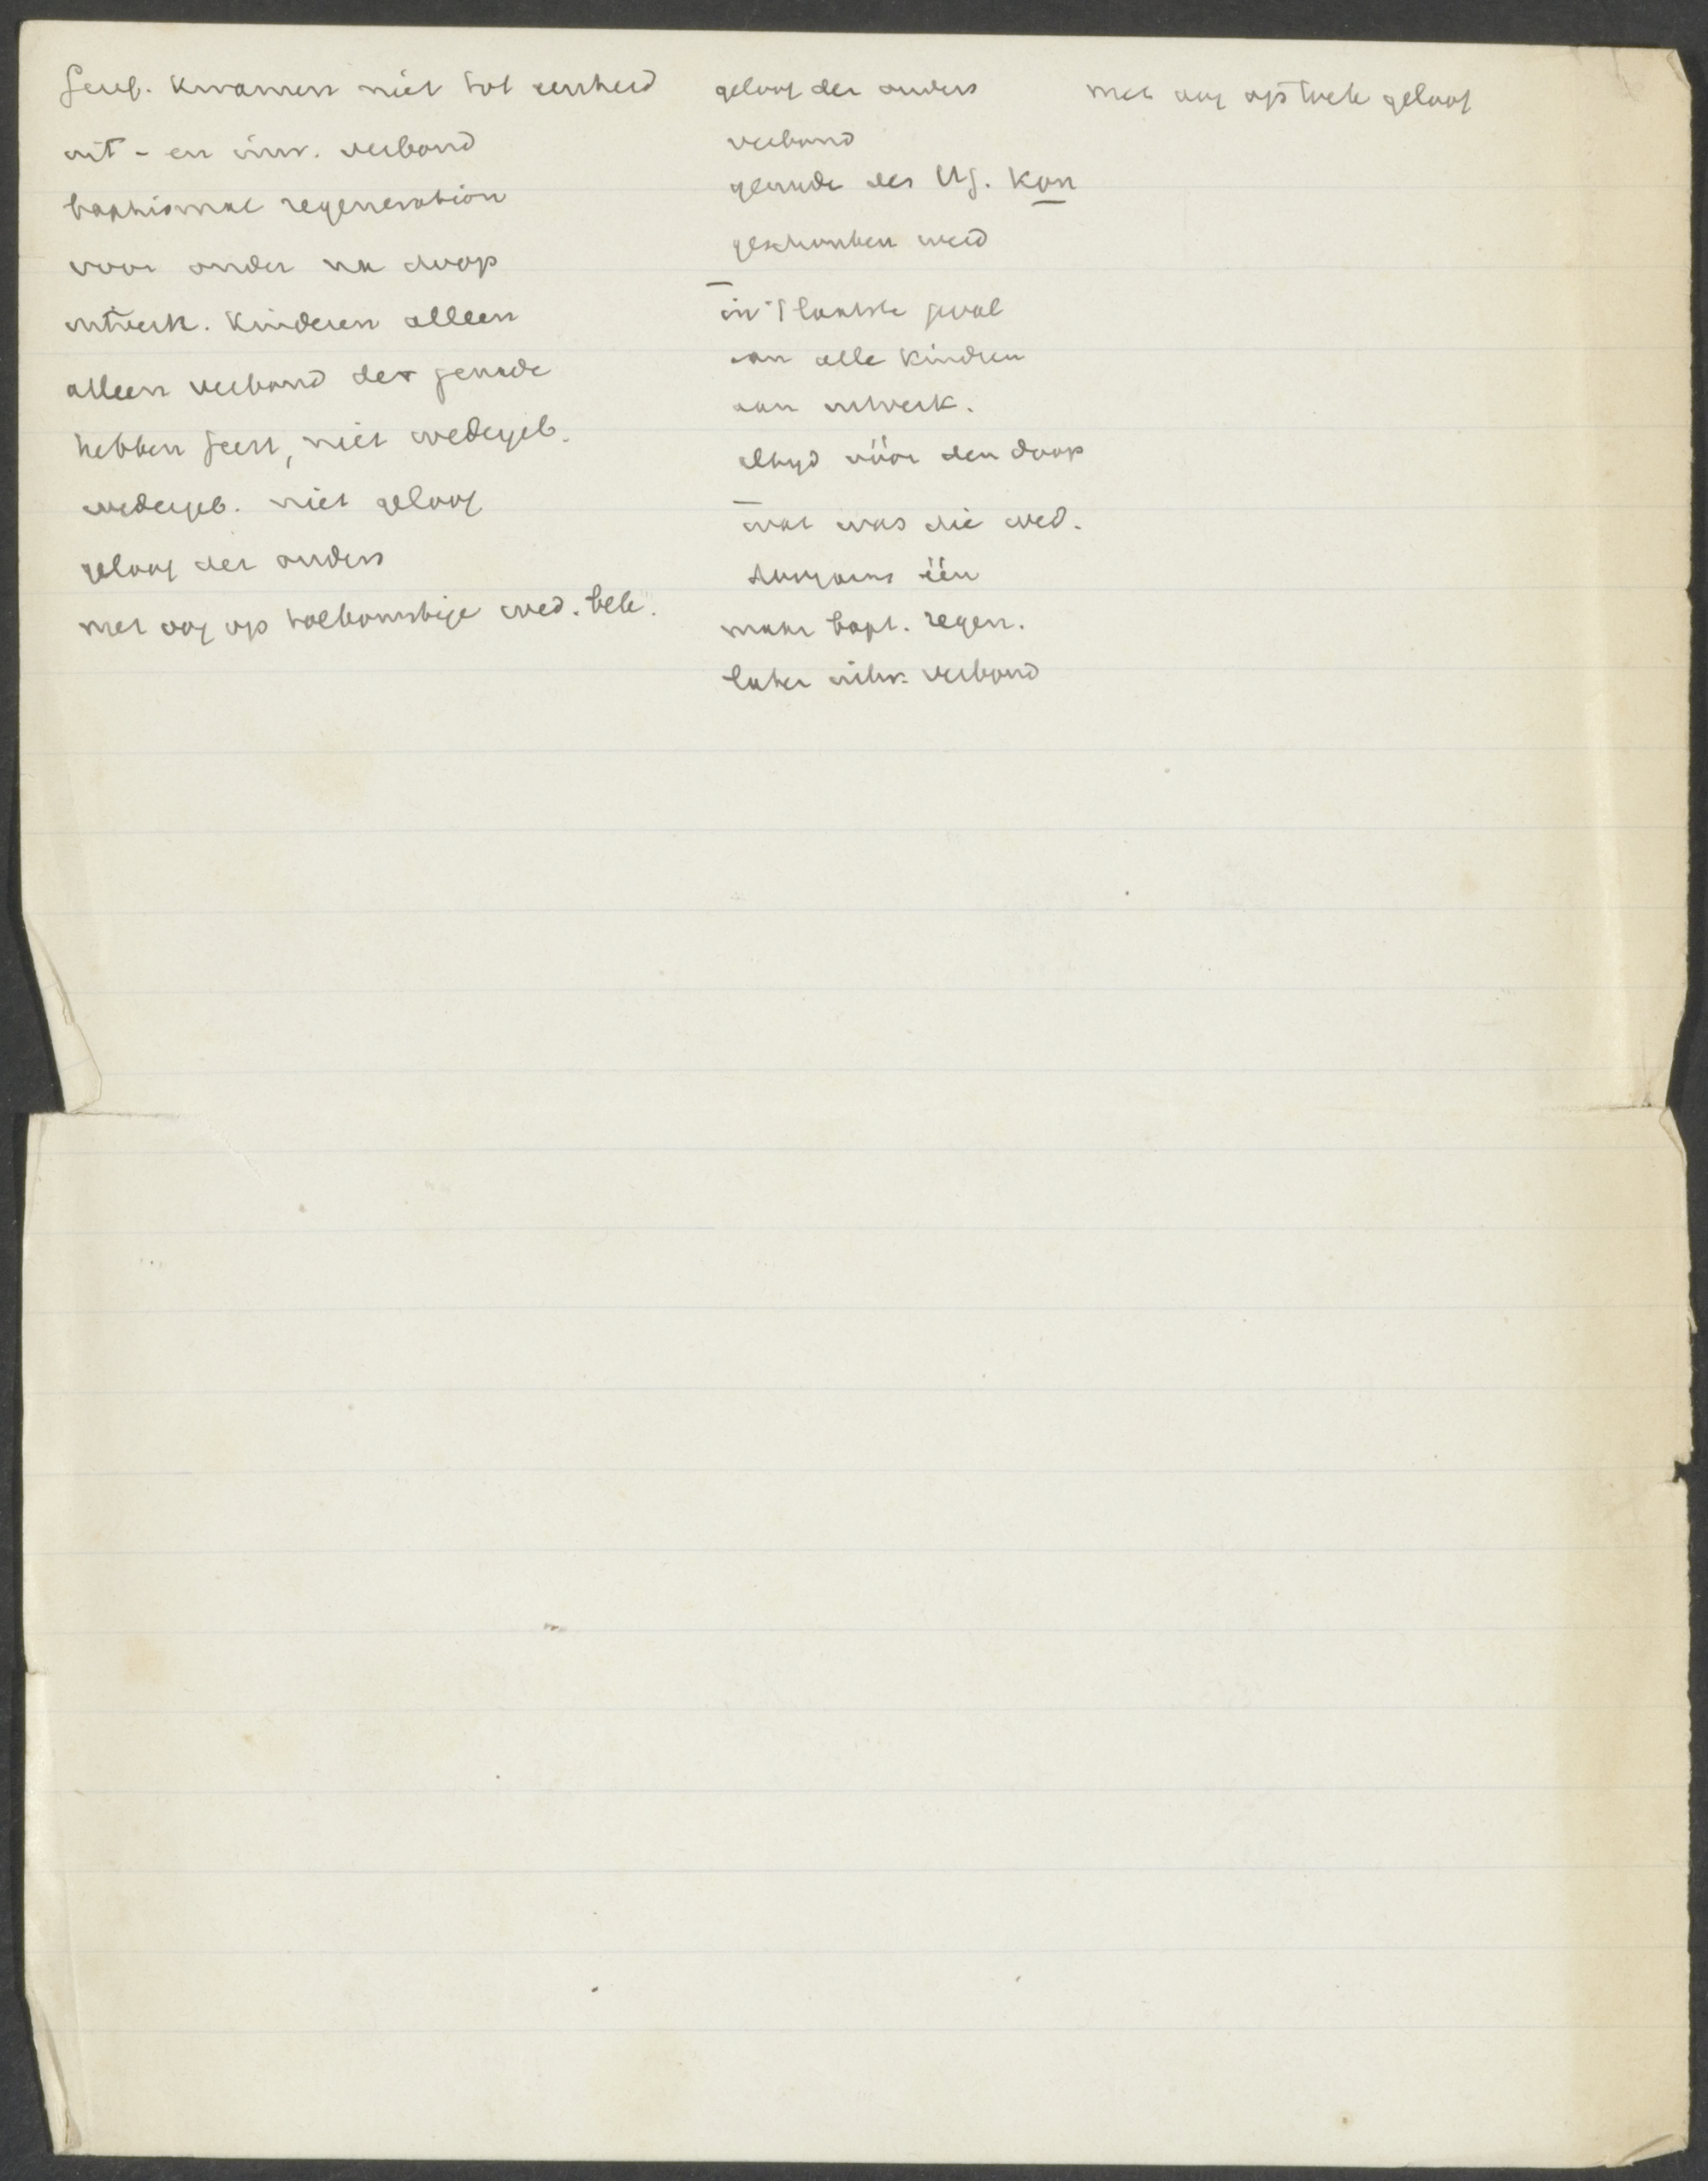 Geref. kwamen niet tot eenheid
uit- en inw. verbond
baptismal regeneration
voor onder na doop
uitverk. kinderen alleen
alleen verbond der genade
hebben Geest, niet wedergeb.
wedergeb. niet geloof
geloof der ouders
met oog op toekomstige wed. bek.
geloof der ouders
verbond
genade des H.G. kon
geschonken werd
in 't laatste geval
aan alle kindren
aan uitverk.
altyd vóór den doop
wat was die wed.
het één
maar bapt. regen.
later uitw. verbond
met oog op toek geloof